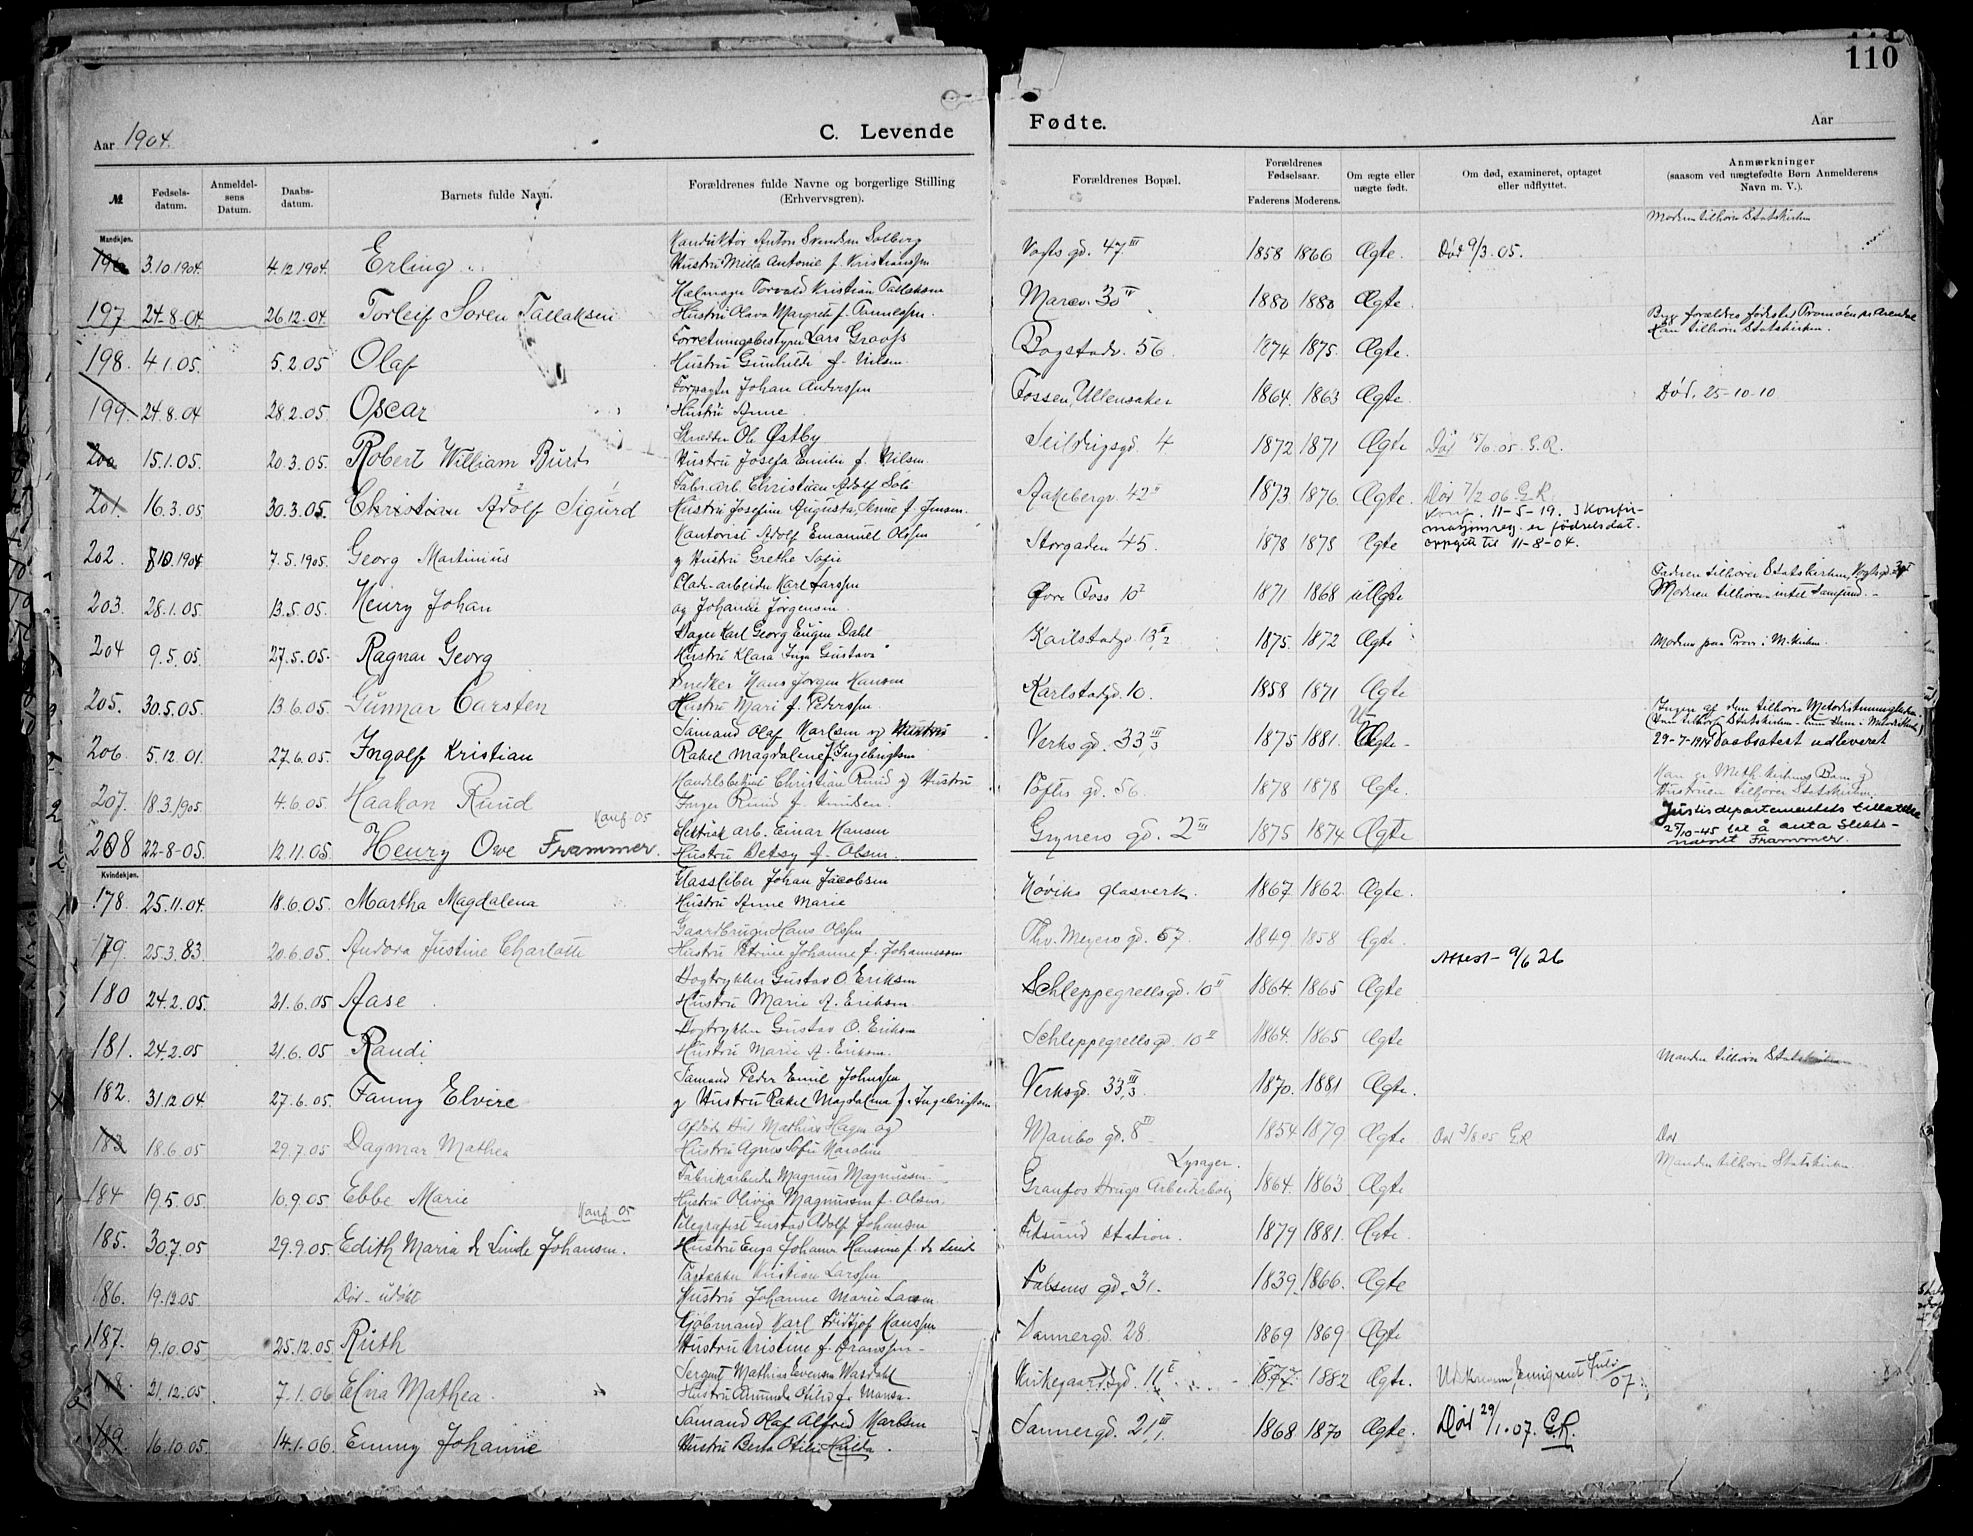 110
Aar 1904.
C. Levende
Fødte.
Aar
№
Fødsels-datum.
Anmeldel-sens Datum.
Daabs-datum.
Barnets fulde Navn.
Forældrenes fulde Navne og borgerlige Stilling (Erhvervsgren).
Forældrenes Bopæl.
Forældrenes Fødselsaar.
Faderens
Moderens.
Om ægte eller uægte født.
Om død, examineret, optaget eller udflyttet.
Anmærkninger (saasom ved uægtefødte Børn Anmelderens Navn m. V.).
Mandkjøn.
Moderen tilhører Statskirken
Konduktør Anton Svendsen Solberg
196 3.10.1904. 4.12.1904. Erling Hustru Milla Antonie f. Kristianssen Vogts gd. 47 III 1858 1866 Ægte. Død 9/3.05.
Torvald Kristian Tallaksen
197 24.8.04 26.12.04. Torleif Soren Tallaksen Hustru Olava Margrete f. 30 IV 1880 1880 Ægte.
tilhører Statskirken.
Forretningsbestyrer Lars
198. 4.1.05. 5.2.05 Olaf Hustru Gunhilde f. Nilsen Bogstadv. 56. 1874 1875. Ægte.
Forpagter Johan Anderssen
199. 24.8.04 28.2.05. Oscar Hustru Anne. Fossen, Ullensaker 1864. 1863 Ægte. Død. 25-10-10
Skrædder Ole Østby
200 15.1.05. 20.3.05. Robert William Hustru Josefa Emilie f. Nilsen. Seilduksgd. 4 1872 1871 Ægte Død 15/6.05. G.R.
Fabr. arb. Christian Adolf
201. 16.3.05. 30.3.05. Christian Adolf Sigurd Hustru Josefine Augusta f. Jensen. Aakebergv. 42 II 1873 1876. Ægte. Død 7/2 06. G.R.
Konf. 11-5-19. I Konfir-
masjonsreg. er fødselsdat.
oppgitt til 11-8-04.
Kontorist Adolf Emanuel Olssen
202. 8.10.1904 7.5.1905. Georg Martinius og Hustru Grethe Sofie Storgaden 45. 1878 1878 Ægte
Karl Larssen
Fadren tilhører Statskirken, Vogtsgd.
203. 28.1.05. 13.5.05. Henry Johan og Johanne Jørgensen. Øvre Foss 10 2 1871 1868 uÆgte Moderen tilhører intet Samfund.
Bager Karl Georg Eugen Dahl
204 9.5.05. 27.5.05. Ragnar Georg Hustru Klara Inga Gustava Karlstadgd. 13 II 2 1875. 1872 Ægte Moderen paa Prøve i M. Kirken.
Snedker Hans Jørgen Hansen
205. 30.5.05. 13.6.05. Gunnar Carsten Hustru Mari f. Pederssen. Karlstadgd. 10. 1858 1871 Ægte
Ingen af dem tilhører Metodistmenigheden
Sømand Olaf Karlsen og Hustru
206 5.12 01. 27.6.05. Ingolf Kristian Rakel Magdalene f. Ingebrigtsen Verksgd. 33, III 3 1875 1881. U Ægte 29-7-1914 Daabsatest udleveret
Handelsbetjent Christian Ruud og Hustru
207. 18.3.1905. 4.6.05. Haakon Ruud Inger Ruud f. Knudsen. Toftes gd. 56. 1878 1878 Ægte.
Han er Meth. kirkens Barn og
Hustruen tilhører Statskirken.
Konf 05
Elektrisk arb. Einar Hansen
208 22-8-05. 12.11.05. Henry Owe Frammer. Hustru Betsy f. Olsen. Gryners gd. 2 III 1875 1874 Ægte
Justisdepartementets tillatelse
25/10-45 til å anta slekts-
navnet Frammer.
Kvindekjøn.
Glassliber Johan Jacobsen
178. 25.11.04. 18.6.05. Martha Magdalena Hustru Anne Marie Høviks glasverk. 1867. 1862. Ægte.
Gaardbruger Hans Olssen
179. 25.3.83. 20.6.05. Andora Justine Charlotte Hustru Petrine Johanne f. Johannessen Thv. Meyers gd. 67. 1849. 1858 Ægte
Attest 9/6 26
Bogtrykker Gustav O. Eriksen
180 24.2.05. 21.6.05 Aase. Hustru Marie A. Eriksen. Schleppegrellsgd. 10 II 1864. 1865 Ægte
Bogtrykker Gustav O. Eriksen
181. 24.2.05 21.6.05 Randi Hustru Marie A. Eriksen. Schleppegrellsgd. 10 II 1864. 1865 Ægte
Manden tilhører Statskirken
Sømand Peder Emil Johnssen
182. 31.12.04. 27.6.05. Fanny Elvire og Hustru Rakel Magdalena f. Ingebrigtsen Verksgd. 33, III 3 1870. 1881 Ægte.
Mathias Hagen og
183 18.6.05 29.7.05 Dagmar Mathea Hustru Agnes Sofie Karoline Maribo gd. 8 III 1854 1879 Ægte Død 3/8 05 G.R. Død
Manden tilhører Statskirken.
Fabrikarbeider Magnus Magnussen
Lysager.
184 19.5.05 10.9.05. Ebbe Marie Hustru Olivia Magnussen f. Olsen Granfos Brugs Arbeiderbolig 1864. 1863. Ægte
Konf. 05
Telegrafist Gustav Adolf Johansen
185. 30.7.05 29.9.05. Edith Maria de Linde Johansen. Hustru Enga Johanne Hansine f. de Linde Fetsund station. 1879 1881. Ægte.
Kristian Larssen
186. 19.12.05. Død - udøbt Hustru Johanne Marie Larsen. Falsens gd. 31. 1839. 1866. Ægte
Kjøbmand Karl Fridtjof Hanssen
187. 9.10.05 25.12.05. Ruth Hustru Kristine f. Franssen Sannergd. 28. 1869 1869 Ægte
Sergent Mathias Evensen
188. 21.12.05. 7.1.06 Elna Mathea. Hustru Kirkegaardsgd. 11 I 1877. 1882 Ægte. Udskreven, Emigreret Juli/07.
Sømand Olaf Alfred Karlsen
189. 16.10.05. 14.1.06. Emmy Johanne Hustru Berta Otilie Hulda. Sannergd. 21, III 1. 1868 1870 Ægte. Død 29/1.07. G.R.